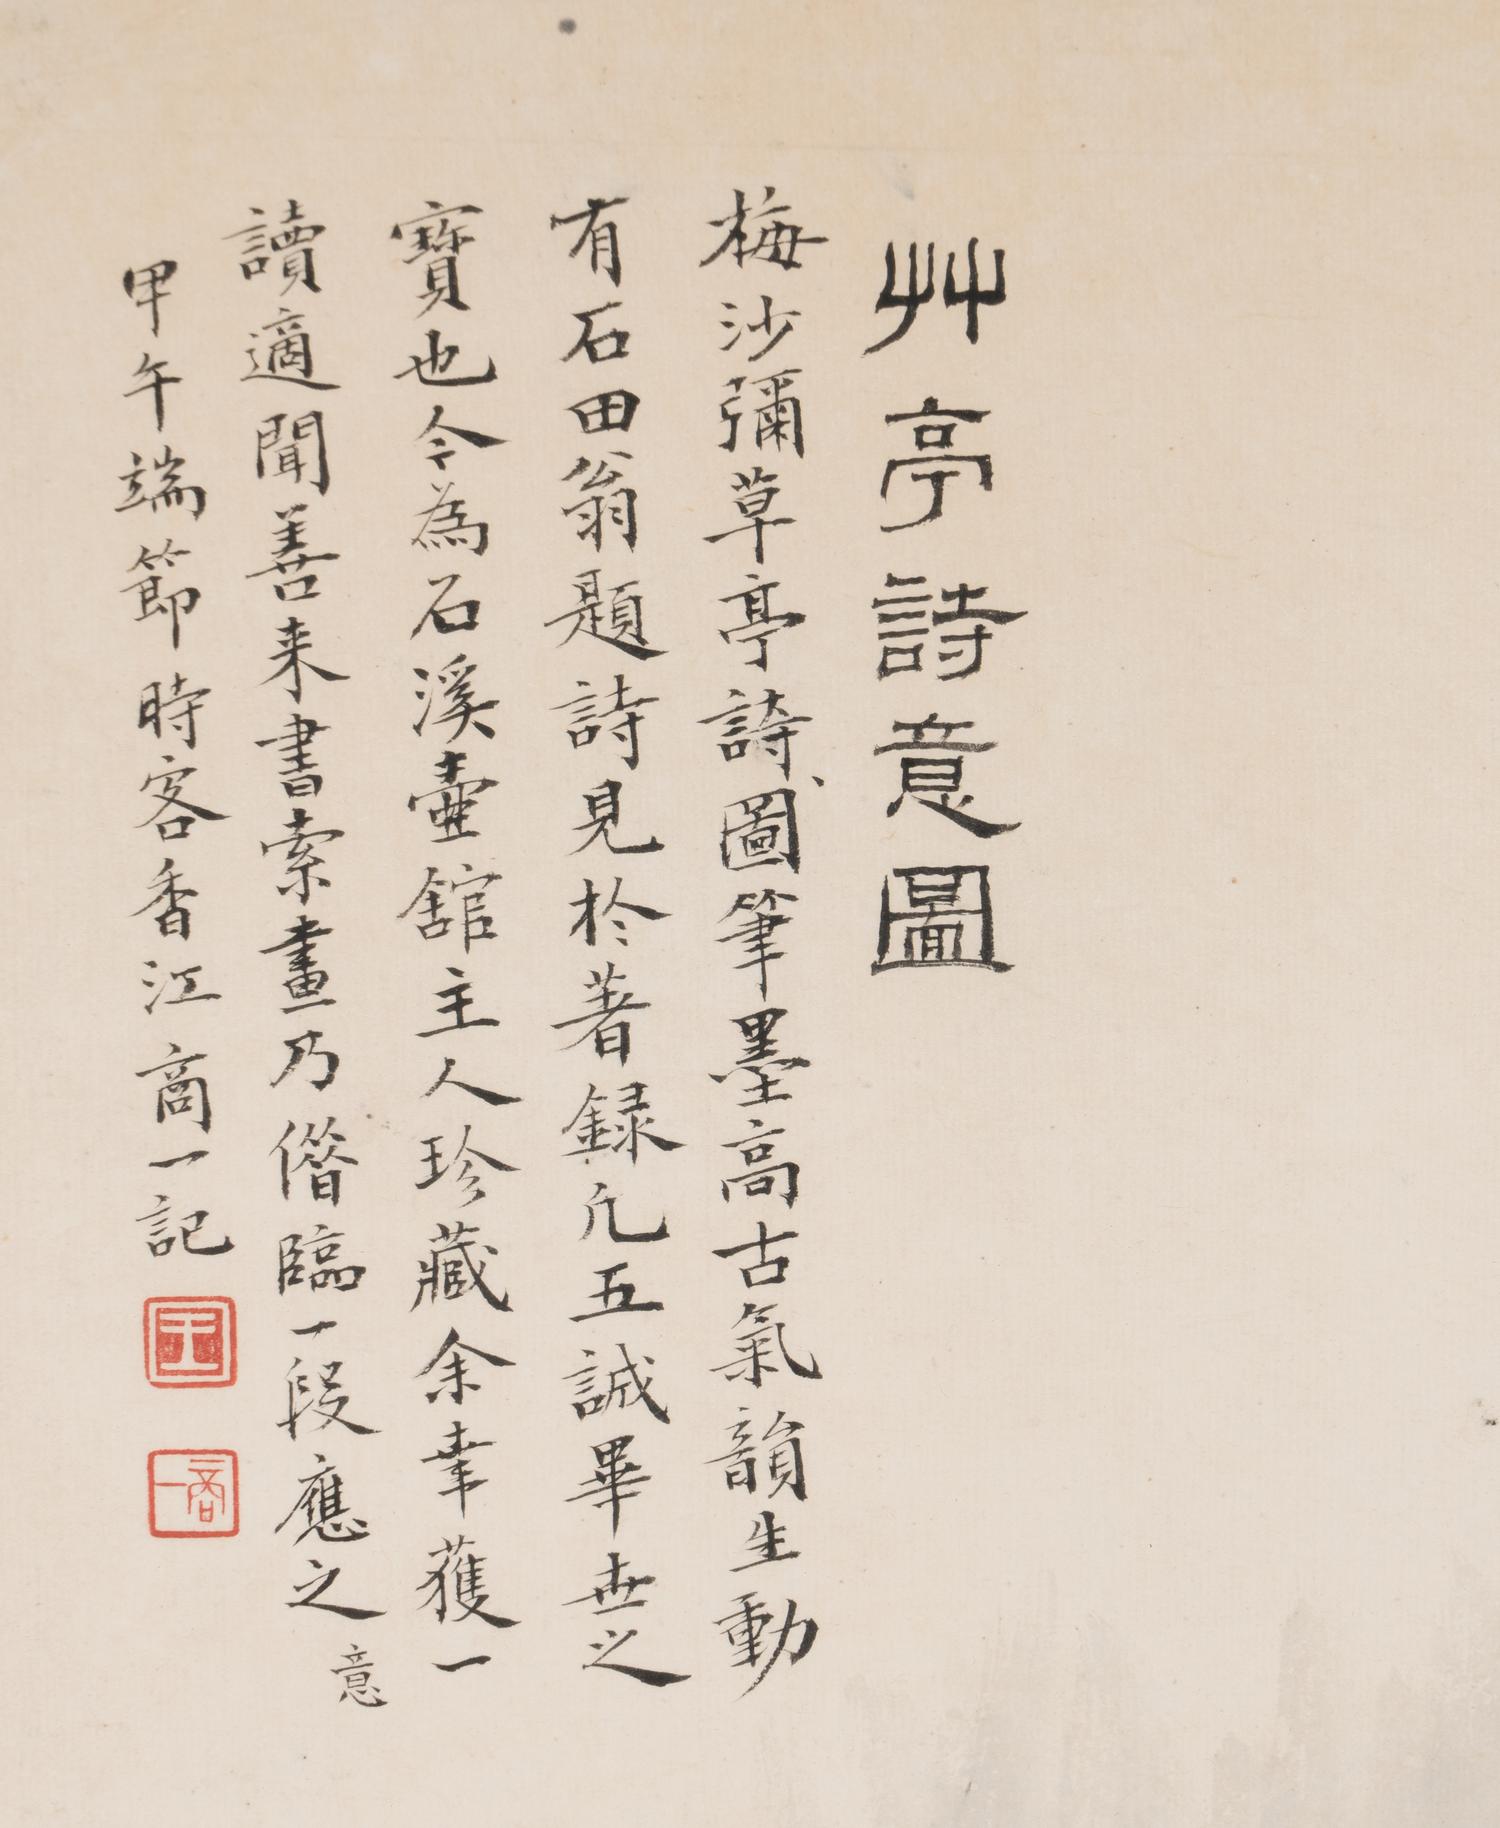 艸亭詩意圖
梅沙彌草亭詩、圖筆墨高古氣韻生動
有石田翁題詩見於著錄凢五誠畢世之
寶也今為石溪壷舘主人珍藏余幸獲一
讀適聞善来書索畫乃僣臨一段應之
意
甲午端節時客香江商一記
商一